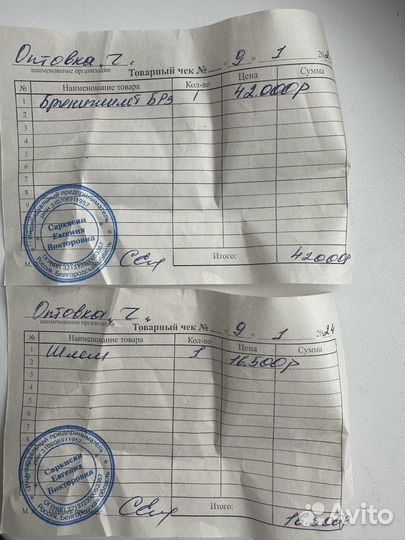 Оптовка „Ч".
наименование организации
Товарный чек № — „ 9 „ 1 2024
№ Наименование товара Кол-во Цена Сумма
1 Бронежилет БР5 1 42000р
2
3
4
5
6
7
8
9
Индивидуальный предприниматель
Саркисян
Евгения
Викторовна
Россия, Белгородская область
Итого: 42000
Оптовка „Ч".
наименование организации
Товарный чек № — „ 9 „ 1 2024
№ Наименование товара Кол-во Цена Сумма
1 Шлем 1 16.500р
2
3
4
5
6
7
8
Индивидуальный предприниматель
Саркисян
Евгения
Викторовна
Россия, Белгородская область
Итого: 16.500р
Avito